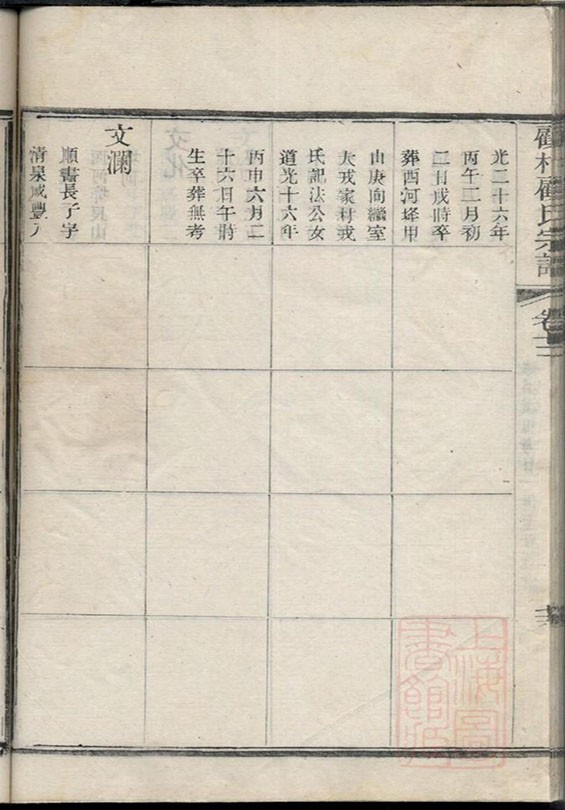 光二十六年
丙午二月初
二日戌時卒
葬西河塝甲
山庚向繼室
大戎家村戎
氏記法公女
道光十六年
丙申六月二
十六日午時
生卒葬無考
文瀾
順書長子字
清泉咸豐八
顧氏宗譜
卷十二
上海圖書館藏